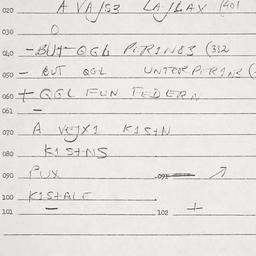 020 A VAJS3 LAJLAX (401
030 O
040 - BUT QGL PERINE3 (332
050 - BUT QGL UNTERPERINE (
060 + QGL FUN FEDERN
061 -
070 A VEJX1 K1StN
080 K1StNS
090 PUX 091
100 K1StALE
101 - 102 +